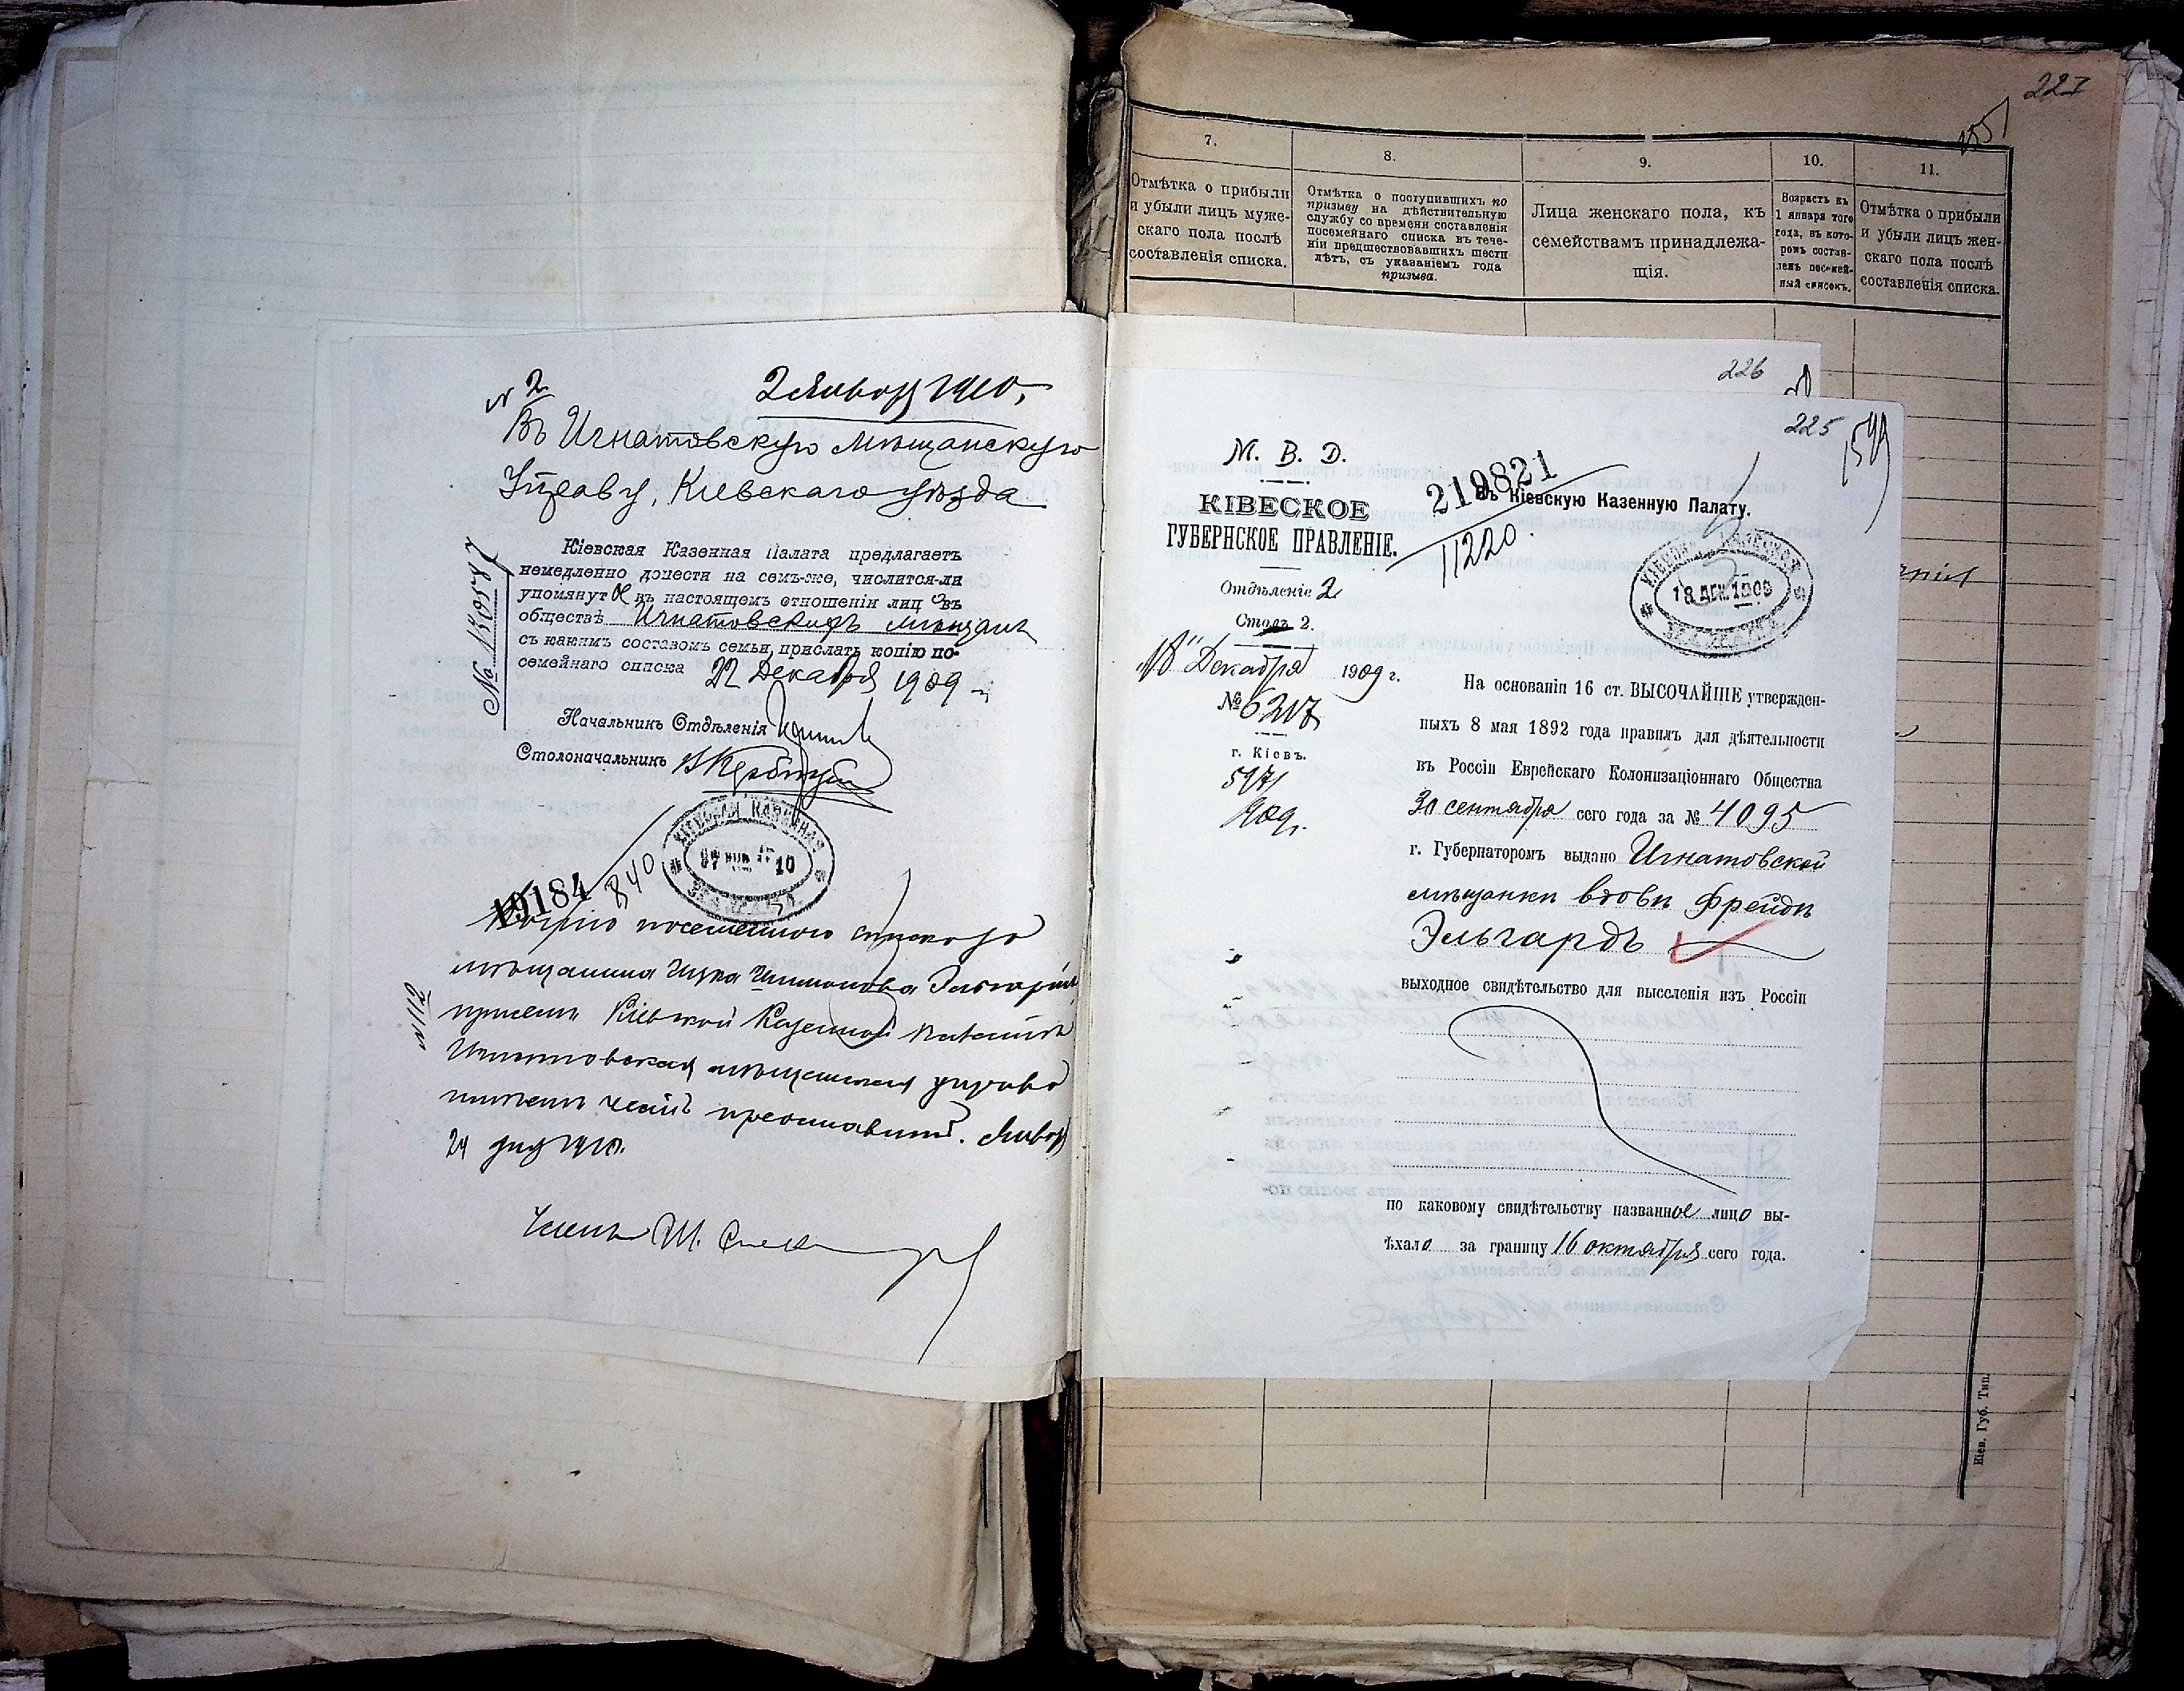 № 2
2 Января 1910,
Въ Игнатовскую Мѣщанскую
Управу, Кіевскаго уѣзда
Кіевская Казенная Палата предлагаетъ
немедленно донести на семъ-же, числится-ли
упомянутое въ настоящемъ отношеніи лицо въ
обществѣ Игнатовскихъ мѣщанъ
съ какимъ составомъ семьи, прислать копію по-
семейнаго списка 22 Декабря 1909 г.
Начальникъ Отдѣленія
Столоначальникъ
КІЕВСКАЯ КАЗЕННАЯ
10
19184
840
Копію посемейнаго списка
мѣщанина Ицка Шимонова Эльгардъ
Кіевской Казенной Палатѣ
Игнатовская мѣщанская управа
при семъ честь предоставить. Января
24 дня 1910.
Членъ М.
221
7.
8.
9.
10.
11.
Отмѣтка о прибыли
и убыли лицъ муже-
скаго пола послѣ
составленія списка.
Отмѣтка о поступившихъ по
призыву на дѣйствительную
службу со времени составленія
посемейнаго списка въ тече-
ніи предшествовавшихъ шести
лѣтъ, съ указаніемъ года
призыва.
Лица женскаго пола, къ
семействамъ принадлежа-
щія.
Возрастъ къ
1 января того
года, въ кото-
ромъ состав-
ленъ посемей-
ный списокъ.
Отмѣтка о прибыли
и убыли лицъ жен-
скаго пола послѣ
составленія списка.
226
225
М. В. Д.
КІВЕСКОЕ
ГУБЕРНСКОЕ ПРАВЛЕНІЕ.
Отдѣленіе 2
Столъ 2.
18" Декабря 1909 г.
№ 6217
г. Кіевъ.
5971
909г.
219821
11220.
Въ Кіевскую Казенную Палату.
18 ДЕК. 1909
На основаніи 16 ст. ВЫСОЧАЙШЕ утвержден-
ныхъ 8 мая 1892 года правилъ для дѣятельности
въ Россіи Еврейскаго Колонизаціоннаго Общества
30 сентября сего года за № 4095
г. Губернаторомъ выдано Игнатовской
мѣщанки вдовѣ Фрейдѣ
Эльгардъ
выходное свидѣтельство для выселенія изъ Россіи
по каковому свидѣтельству названное лицо вы-
ѣхало за границу 16 октября сего года.
Кіев. Губ. Тип.